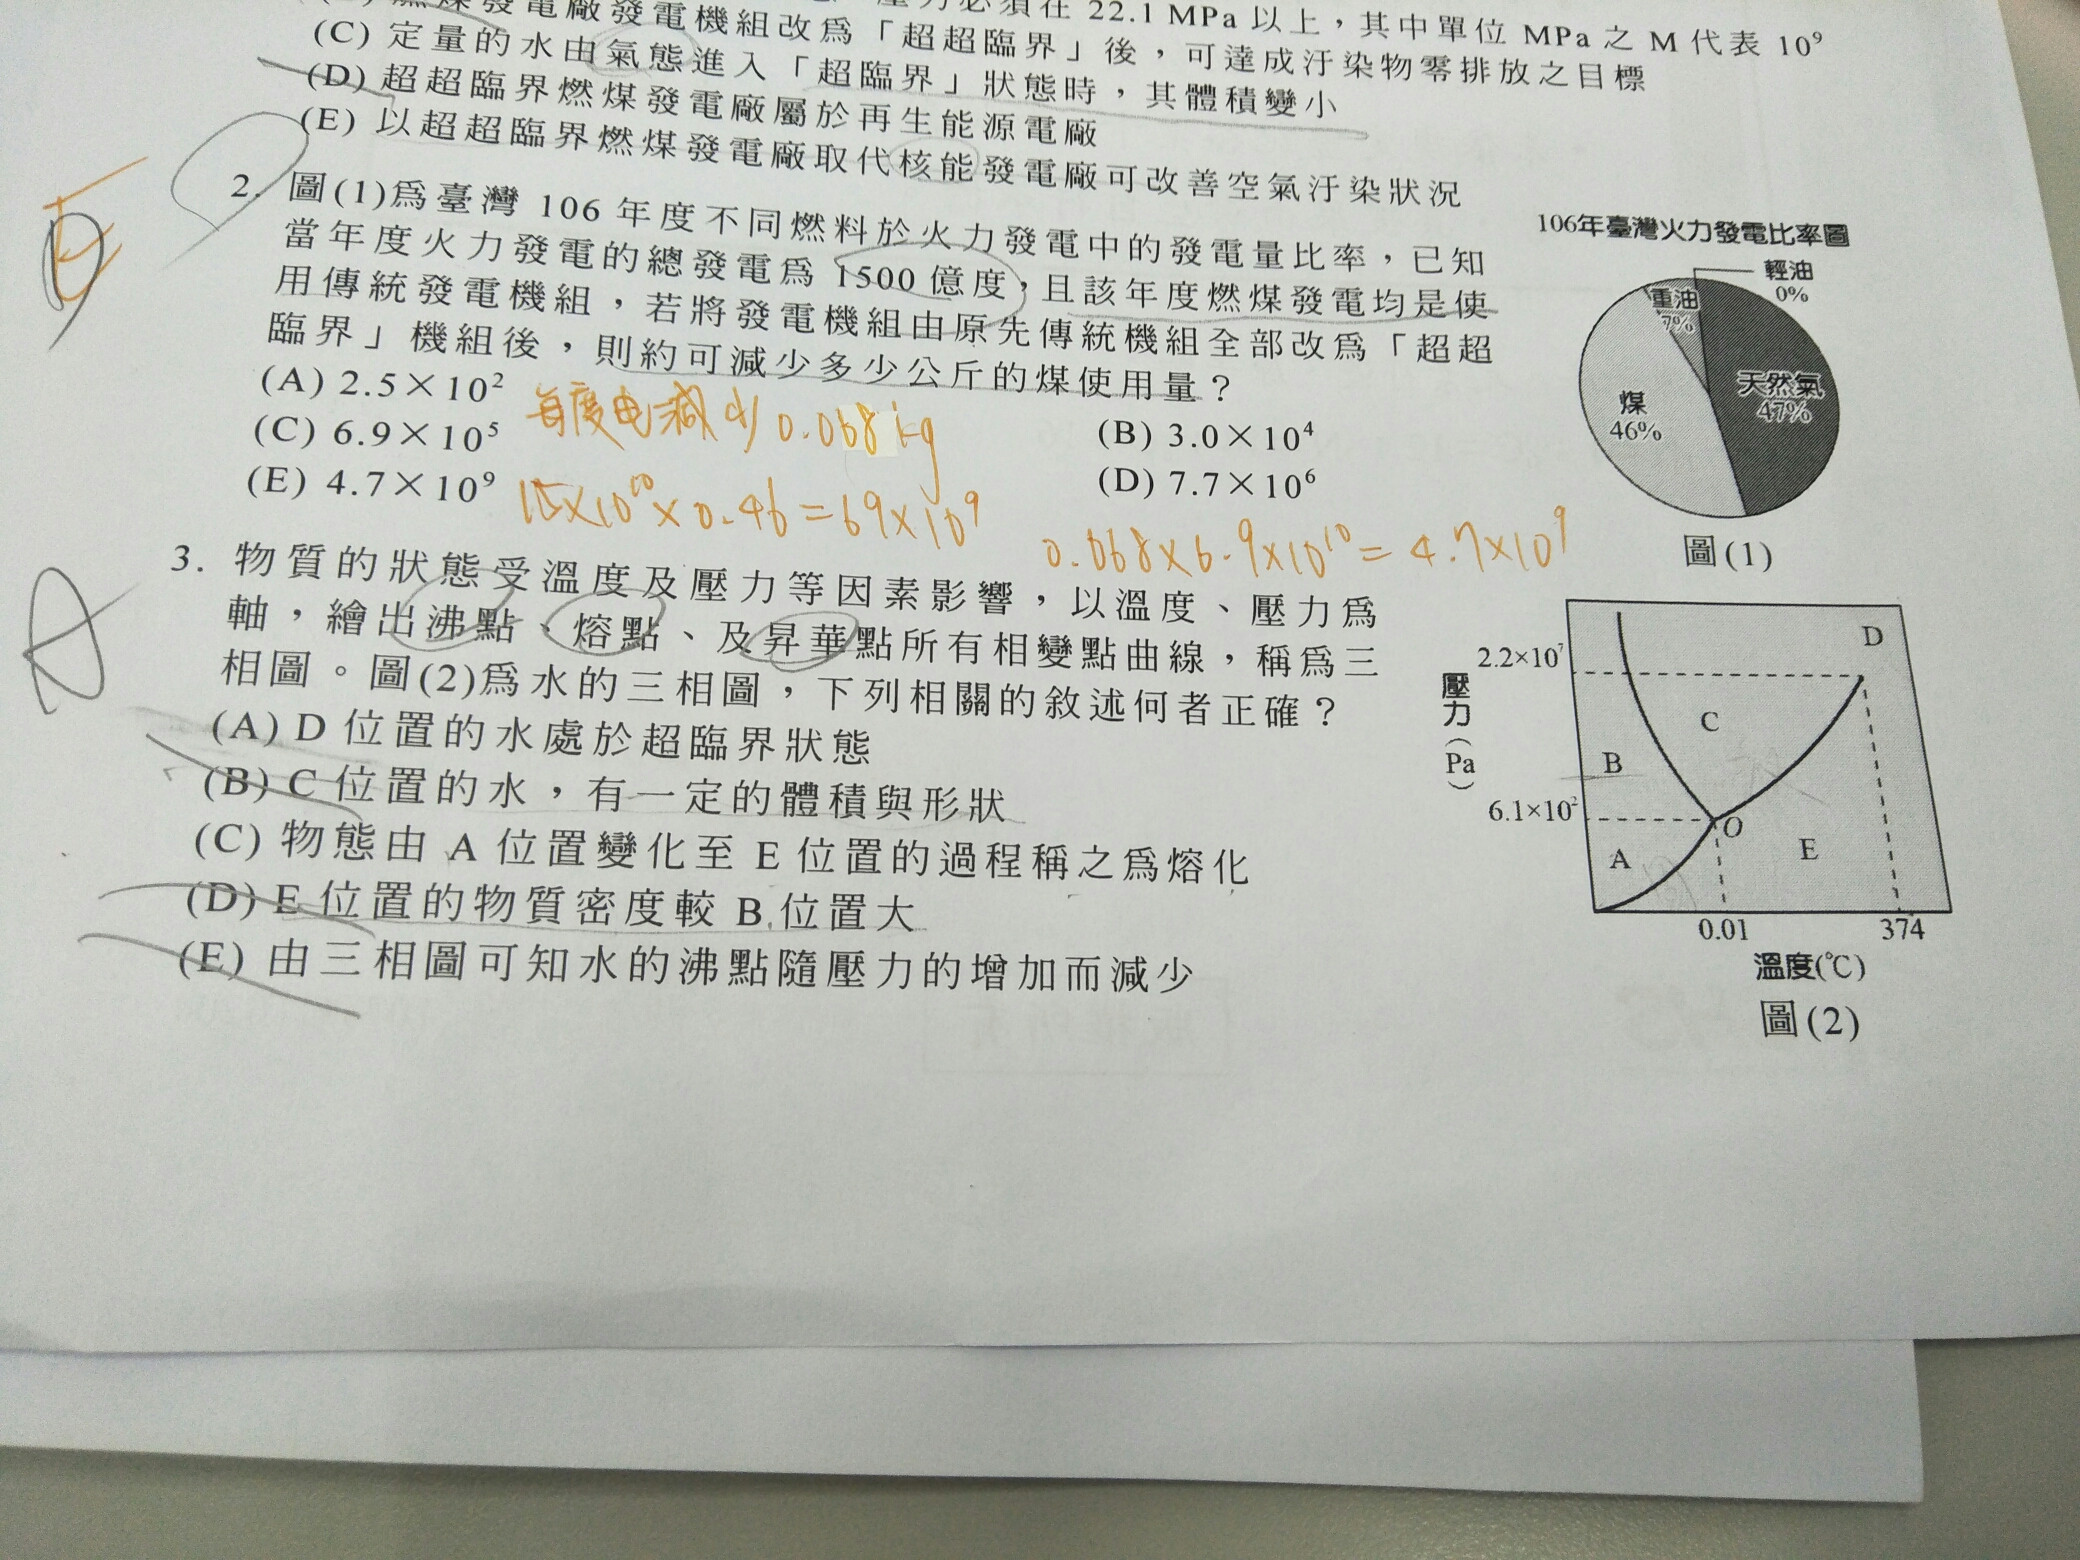 壓力必須在 22.1 MPa 以上，其中單位 MPa 之 M 代表 10⁹
燃煤發電廠發電機組改為「超超臨界」後，可達成汙染物零排放之目標
(C) 定量的水由氣態進入「超臨界」狀態時，其體積變小
(D) 超超臨界燃煤發電廠屬於再生能源電廠
(E) 以超超臨界燃煤發電廠取代核能發電廠可改善空氣汙染狀況
E
2. 圖(1)為臺灣 106 年度不同燃料於火力發電中的發電量比率，已知
當年度火力發電的總發電為 1500 億度，且該年度燃煤發電均是使
用傳統發電機組，若將發電機組由原先傳統機組全部改為「超超
臨界」機組後，則約可減少多少公斤的煤使用量？
(A) 2.5×10²
(B) 3.0×10⁴
(C) 6.9×10⁵
(D) 7.7×10⁶
(E) 4.7×10⁹
每度电減少 0.068 kg
15×10¹⁰×0.46=69×10⁹
0.068×6.9×10¹⁰=4.7×10⁹
106年臺灣火力發電比率圖
輕油
0%
重油
7%
天然氣
47%
煤
46%
圖(1)
A
3. 物質的狀態受溫度及壓力等因素影響，以溫度、壓力為
軸，繪出沸點、熔點、及昇華點所有相變點曲線，稱為三
相圖。圖(2)為水的三相圖，下列相關的敘述何者正確？
(A) D 位置的水處於超臨界狀態
(B) C 位置的水，有一定的體積與形狀
(C) 物態由 A 位置變化至 E 位置的過程稱之為熔化
(D) E 位置的物質密度較 B 位置大
(E) 由三相圖可知水的沸點隨壓力的增加而減少
2.2×10⁷
壓力(Pa)
6.1×10²
D
C
B
O
A
E
0.01
374
溫度(℃)
圖(2)